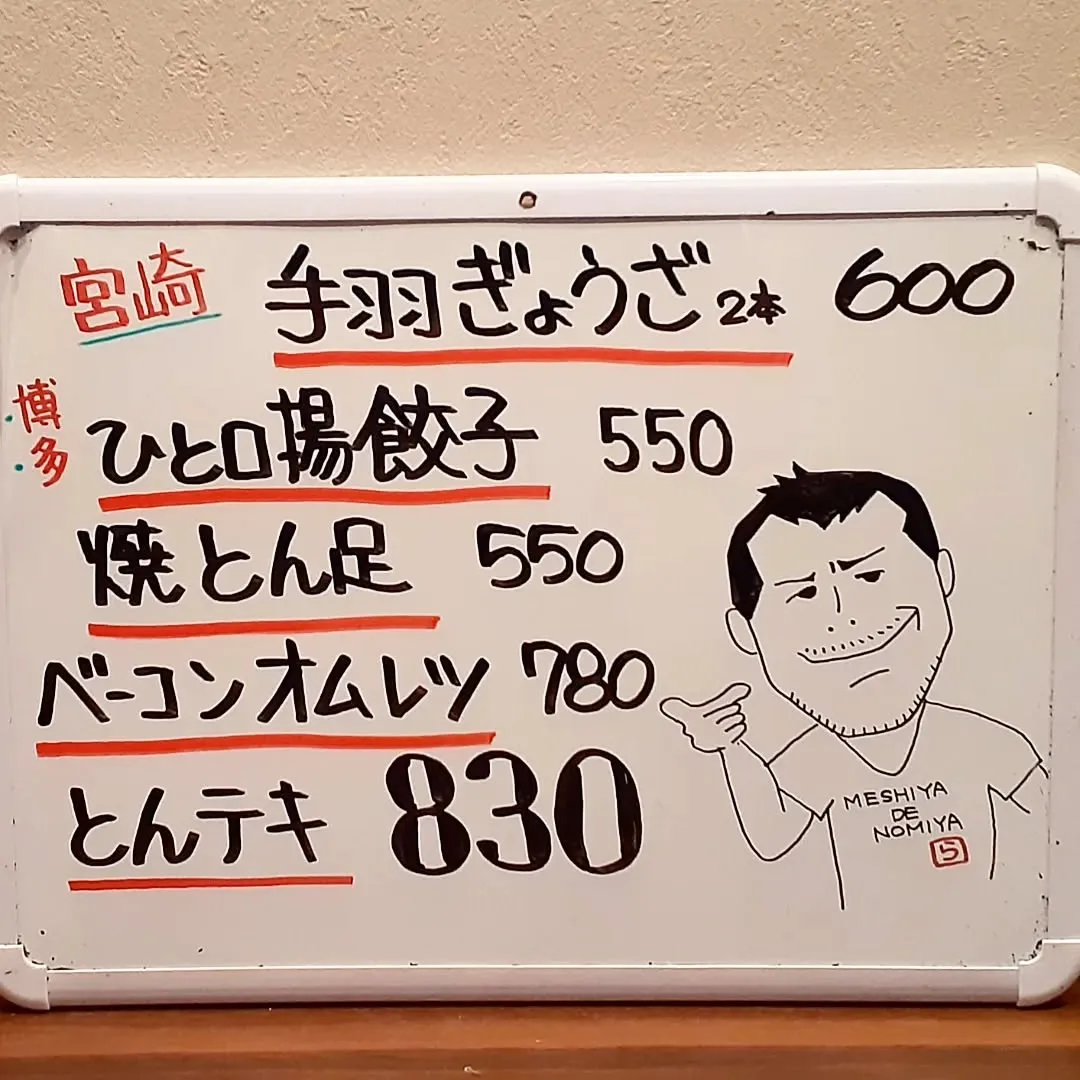 宮崎 手羽ぎょうざ 2本 600
博多 ひと口揚餃子 550
焼とん足 550
ベーコンオムレツ 780
とんテキ 830
MESHIYA
DE
NOMIYA
ら